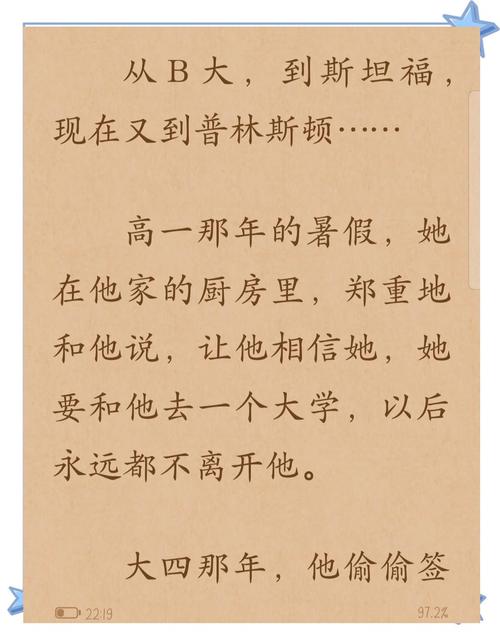 从B大，到斯坦福，
现在又到普林斯顿……
高一那年的暑假，她
在他家的厨房里，郑重地
和他说，让他相信她，她
要和他去一个大学，以后
永远都不离开他。
大四那年，他偷偷签
22:19
97.2%